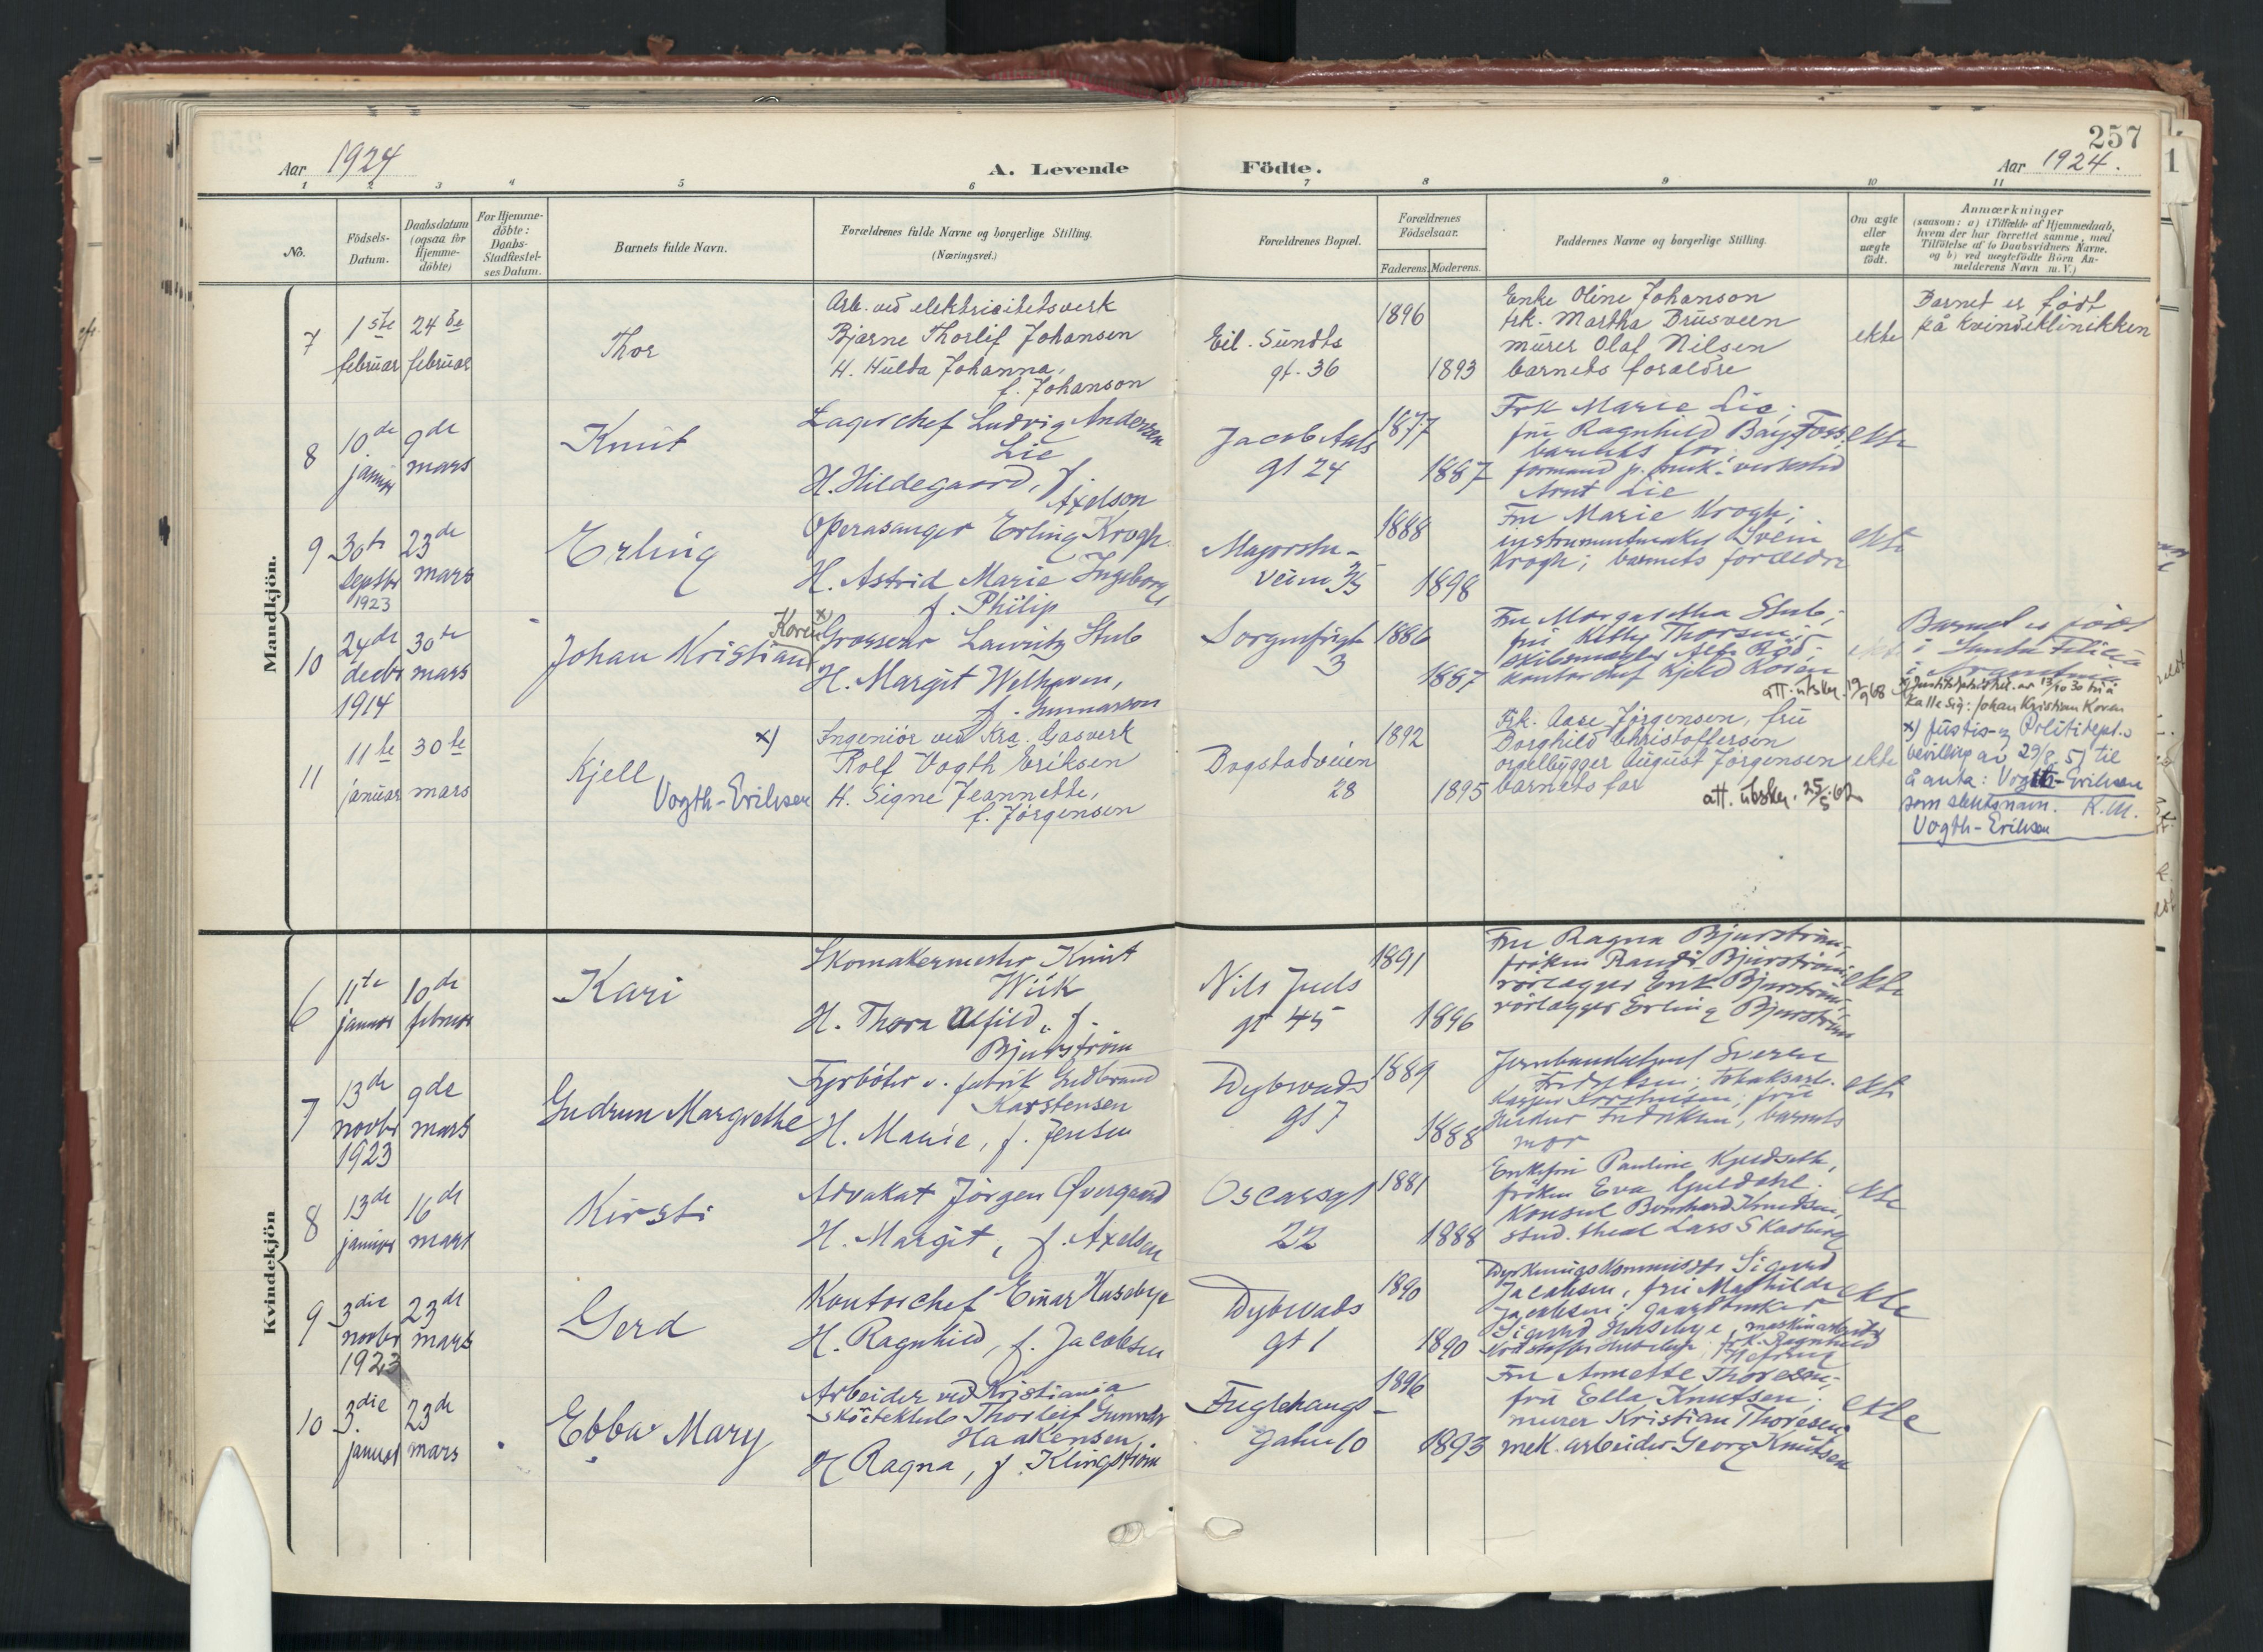 257
Aar 1924
A. Levende Födte.
Aar 1924.
1 2 3 4 5 6 7 8 9 10 11
No.
Födsels-
Datum.
Daabsdatum
(ogsaa for
Hjemme-
döbte)
For Hjemme-
döbte:
Daabs-
Stadfæstel-
ses Datum.
Barnets fulde Navn.
Forældrenes fulde Navne og borgerlige Stilling.
(Næringsvei.)
Forældrenes Bopæl.
Forældrenes
Födselsaar.
Faderens. Moderens.
Faddernes Navne og borgerlige Stilling.
Om ægte
eller
uægte
födt.
Anmærkninger
(saasom: a) i Tilfælde af Hjemmedaab,
hvem der har forrettet samme, med
Tilföielse af to Daabsvidners Navne,
og b) ved uægtefödte Börn An-
melderens Navn m. V.)
Mandkjön.
7
1ste
februar
24de
februar
Thor
Arb. ved elektricitetsverk
Bjarne Thorlif Johansen
H. Hulda Johanna,
f. Johanson
Eil. Sundts
gt. 36
1896
1893
Enke Oline Johanson
frk. Martha Brusveen
murer Olaf Nilsen
barnets foraldre
ekte
Barnet er født
på kvindeklinikken
8
10de
januar
9de
mars
Knut
Lagerchef Ludvig Andersen
Lie
H. Hildegaard, f.
Axelson
Jacob Aals
gt 24
1877
1887
Frk Marie Lie;
fru Ragnhild Bay Foss
barnets far;
formand p. mek. verksted
Arnt Lie
ekte
9
30te
septbr
1923
23de
mars
Erling
Operasanger Erling Krogh
H. Astrid Marie Ingeborg
f. Philip
Majorstu-
veien
1888
1898
Fru Marie Krogh;
instrumentmaker Svein
Krogh; barnets forældre
ekte
10
24de
decbr
1914
30te
mars
Johan Kristian
Koren x)
Grosserer Lauritz Stub
H. Margit Welhaven,
f. Gunnarson
Sorgenfrigt
3
1886
1887
Fru Margaretha Stub;
fru Kitty Thorsen;
skibsmægler Alb. Rød;
kontorchef Kjeld Koren
att. utskr. 19/9 68
Barnet er født
i Santa Felicia
i Argentina
x) Justitsdep. tillat. av 13/10 30 til å
kalle sig: Johan Kristian Koren
11
11te
januar
30te
mars
Kjell
Vogth-Eriksen
x)
Ingeniör ved Kra. Gasverk
Rolf Vogth Eriksen
H. Signe Jeannette,
f. Jörgensen
Bogstadveien
28
1892
1895
Frk. Aase Jörgensen, fru
Borghild Christoffersen
orgelbygger August Jörgensen
barnets far
att. utskr. 25/5.62
ekte
x) Justis- og Politidept.s
bevilling av 29/8.51 til
å anta: Vogth-Eriksen
som slektsnavn. K.M.
Vogth-Eriksen
Kvindekjön
6
11te
januar
10de
februar
Kari
Skomakermester Knut
Wiik
H. Thora Alfild, f.
Bjurström
Nils Juels
gt 45
1891
1896
Fru Ragna Bjurström,
fröken Randi Bjurström,
rörlægger Erik Bjurström,
rörlægger Erling Bjurström
ekte
7
13de
novbr
1923
9de
mars
Gudrun Margrethe
Fyrböter v. fabrik Gudbrand
Karstensen
H. Marie, f. Jensen
Dybwads
gt 7
1889
1888
Jernbanebetjent Sverre
Fredriksen; tobaksarb.
Kasper Karstensen; fru
Fredriksen; barnets
mor
ekte
8
13de
januar
16de
mars
Kirsti
Advakat Jörgen Øvergaard
H. Margit, f. Axelsen
Oscarsgt
22
1881
1888
Enkefru Pauline Kjeldseth,
fröken Eva Guldahl.
Konsul Bernhard Knudsen,
stud. theol Lars Skarberg
ekte
9
3die
novbr
1923
23de
mars
Gerd
Kontorchef Einar Huseby
H. Ragnhild, f. Jacobsen
Dybwads
gt 1
1890
1890
Dyrkningskommissær Sigurd
Jacobsen, fru Mathilde
Jacobsen; gaardbruker
Sigurd Huseby, maskinarbeider
Kristoffer Huseby, frk. Ragnhild
ekte
10
3die
januar
23de
mars
Ebba Mary
Arbeider ved Kristiania
sköiteklub Thorleif Gunvald
Haakensen
H Ragna, f. Klingström
Fuglehaugs-
gaten 10
1896
1893
Fru Annette Thoresen;
fru Ella Knutsen;
murer Kristian Thoresen;
mek. arbeider Georg Knutsen
ekte